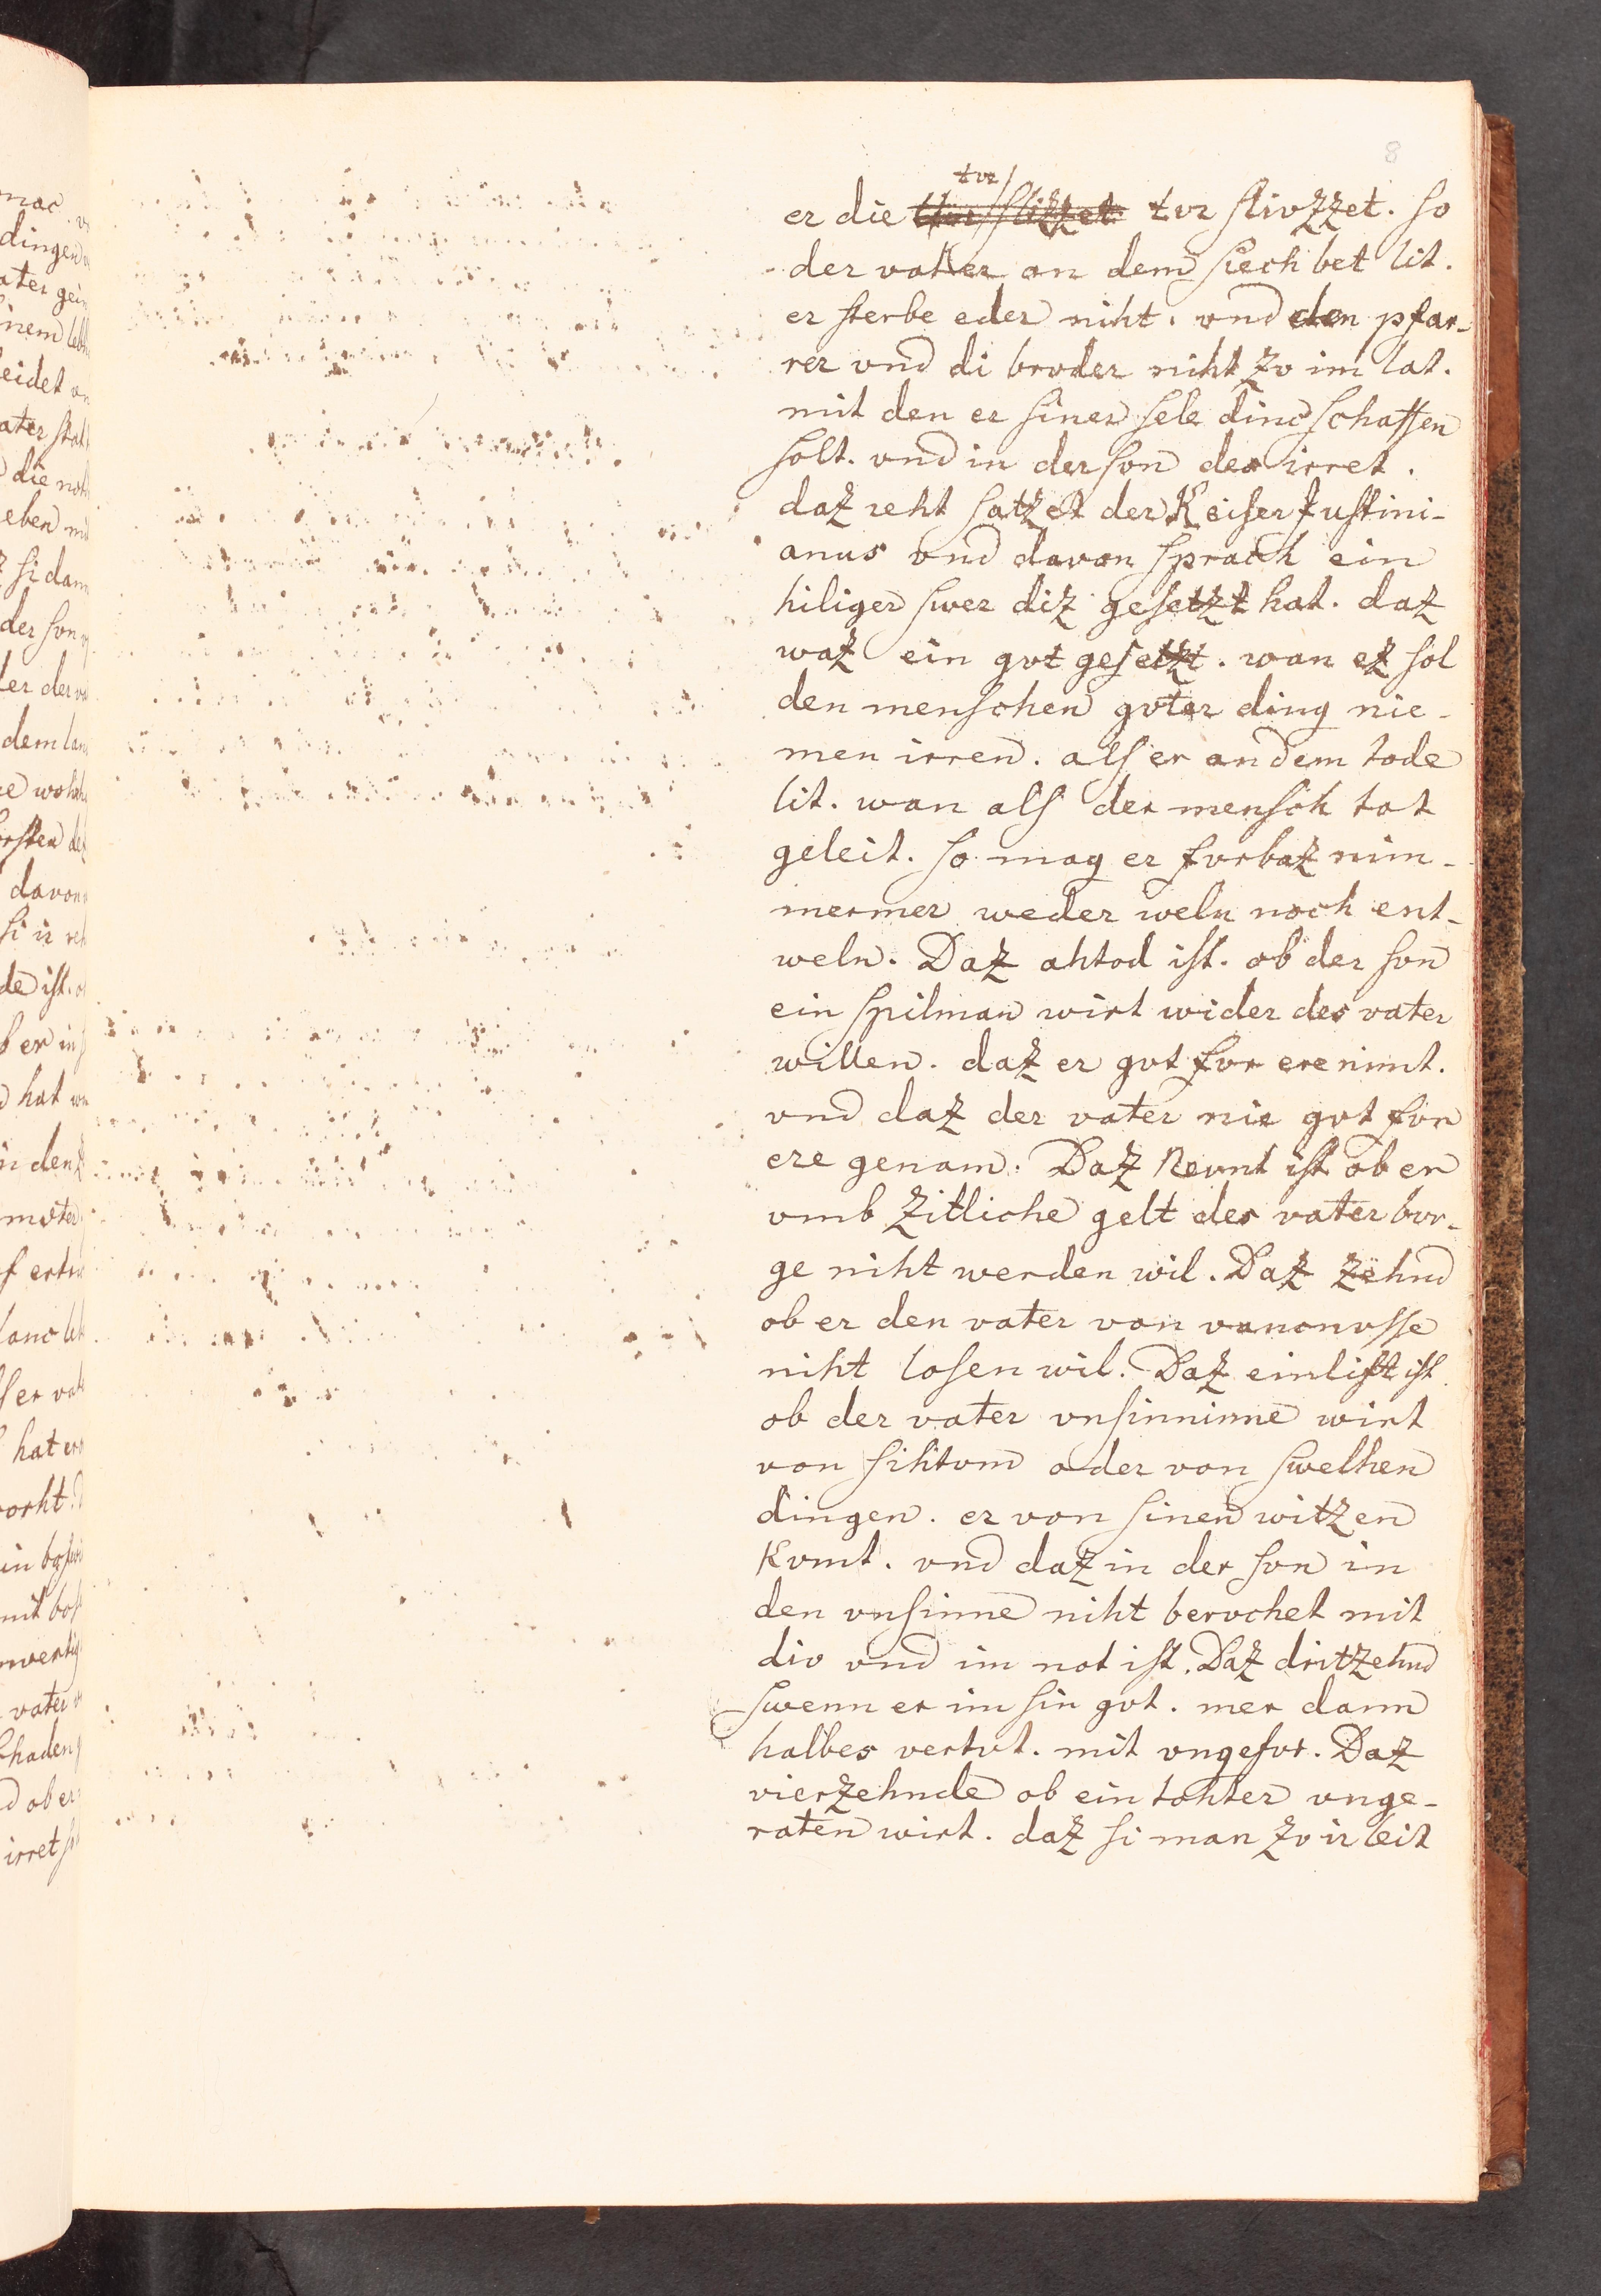 8
tvr
er die tvr slivzzet. so
der vatter an dem siech bet lit.
er sterbe eder niht. vnd den pfar-
rer vnd di brvder niht zv im lat.
mit den er siner sele dinc schaffen
solt. vnd in der son des irret.
daz reht satzet der Keiser Justini-
anus vnd davon sprach ein
hiliger swer diz gesetzt hat. daz
waz ein gvt gesetzt. wan ez sol
den menschen gvter ding nie-
men irren. als er an dem tode
lit. wan als der mensch tot
geleit. so mag er fvrbaz nim-
mermer weder weln noch ent-
weln. Daz ahtod ist. ob der son
ein spilman wirt wider des vater
willen. daz er gvt fvr ere nimt.
vnd daz der vater nie gvt fvr
ere genam. Daz Nevnt ist ob er
vmb zitliche gelt des vater bvr-
ge niht werden wil. Daz zehnd
ob er den vater von vancnvsse
niht losen wil. Daz einlift ist
ob der vater vnsinninne wirt
von sihtvm oder von swelhen
dingen. er von sinen witzen
kvmt. vnd daz in der svn in
den vnsinne niht bervchet mit
div vnd im not ist. Daz dritzehnd
swenn er im sin gvt. mer dann
halbes vertvt. mit vngefvr. Daz
vierzehnde ob ein tohter vnge-
raten wirt. daz si man zv ir leit